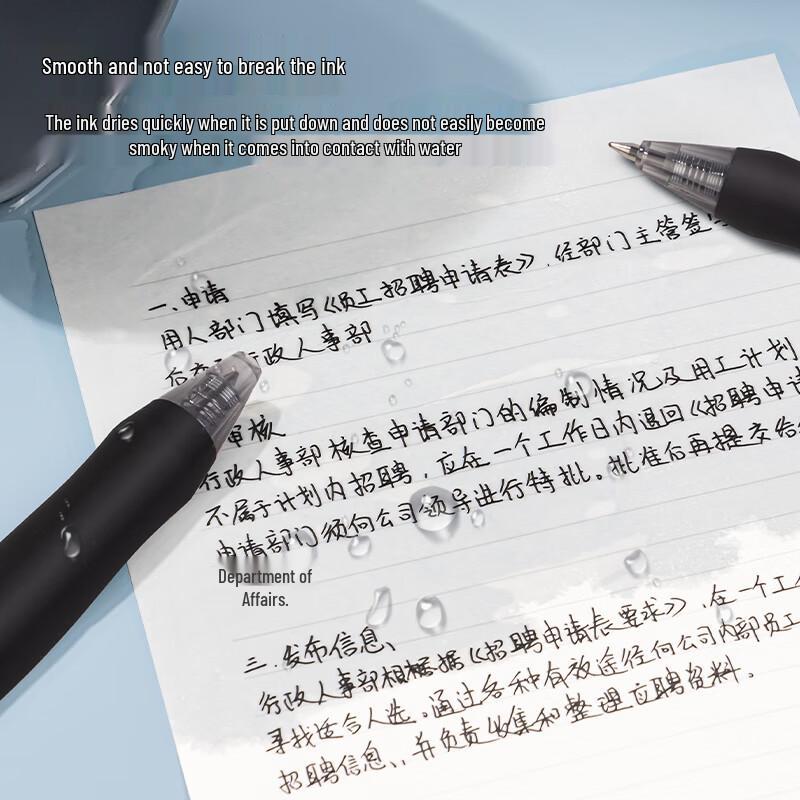 Smooth and not easy to break the ink
The ink dries quickly when it is put down and does not easily become
smoky when it comes into contact with water
一、申请
用人部门填写《员工招聘申请表》，经部门主管签
后 行政人事部
审核
行政人事部核查申请部门的编制情况及用工计划
不属于计划内招聘，应在一个工作日内退回《招聘申请
申请部门须向公司领导进行特批。批准后再提交给
Department of
Affairs.
三、发布信息、
行政人事部根据《招聘申请表要求》，在一个工
寻找适合人选。通过各种有效途径向公司内部员工
招聘信息、，并负责收集和整理应聘资料。